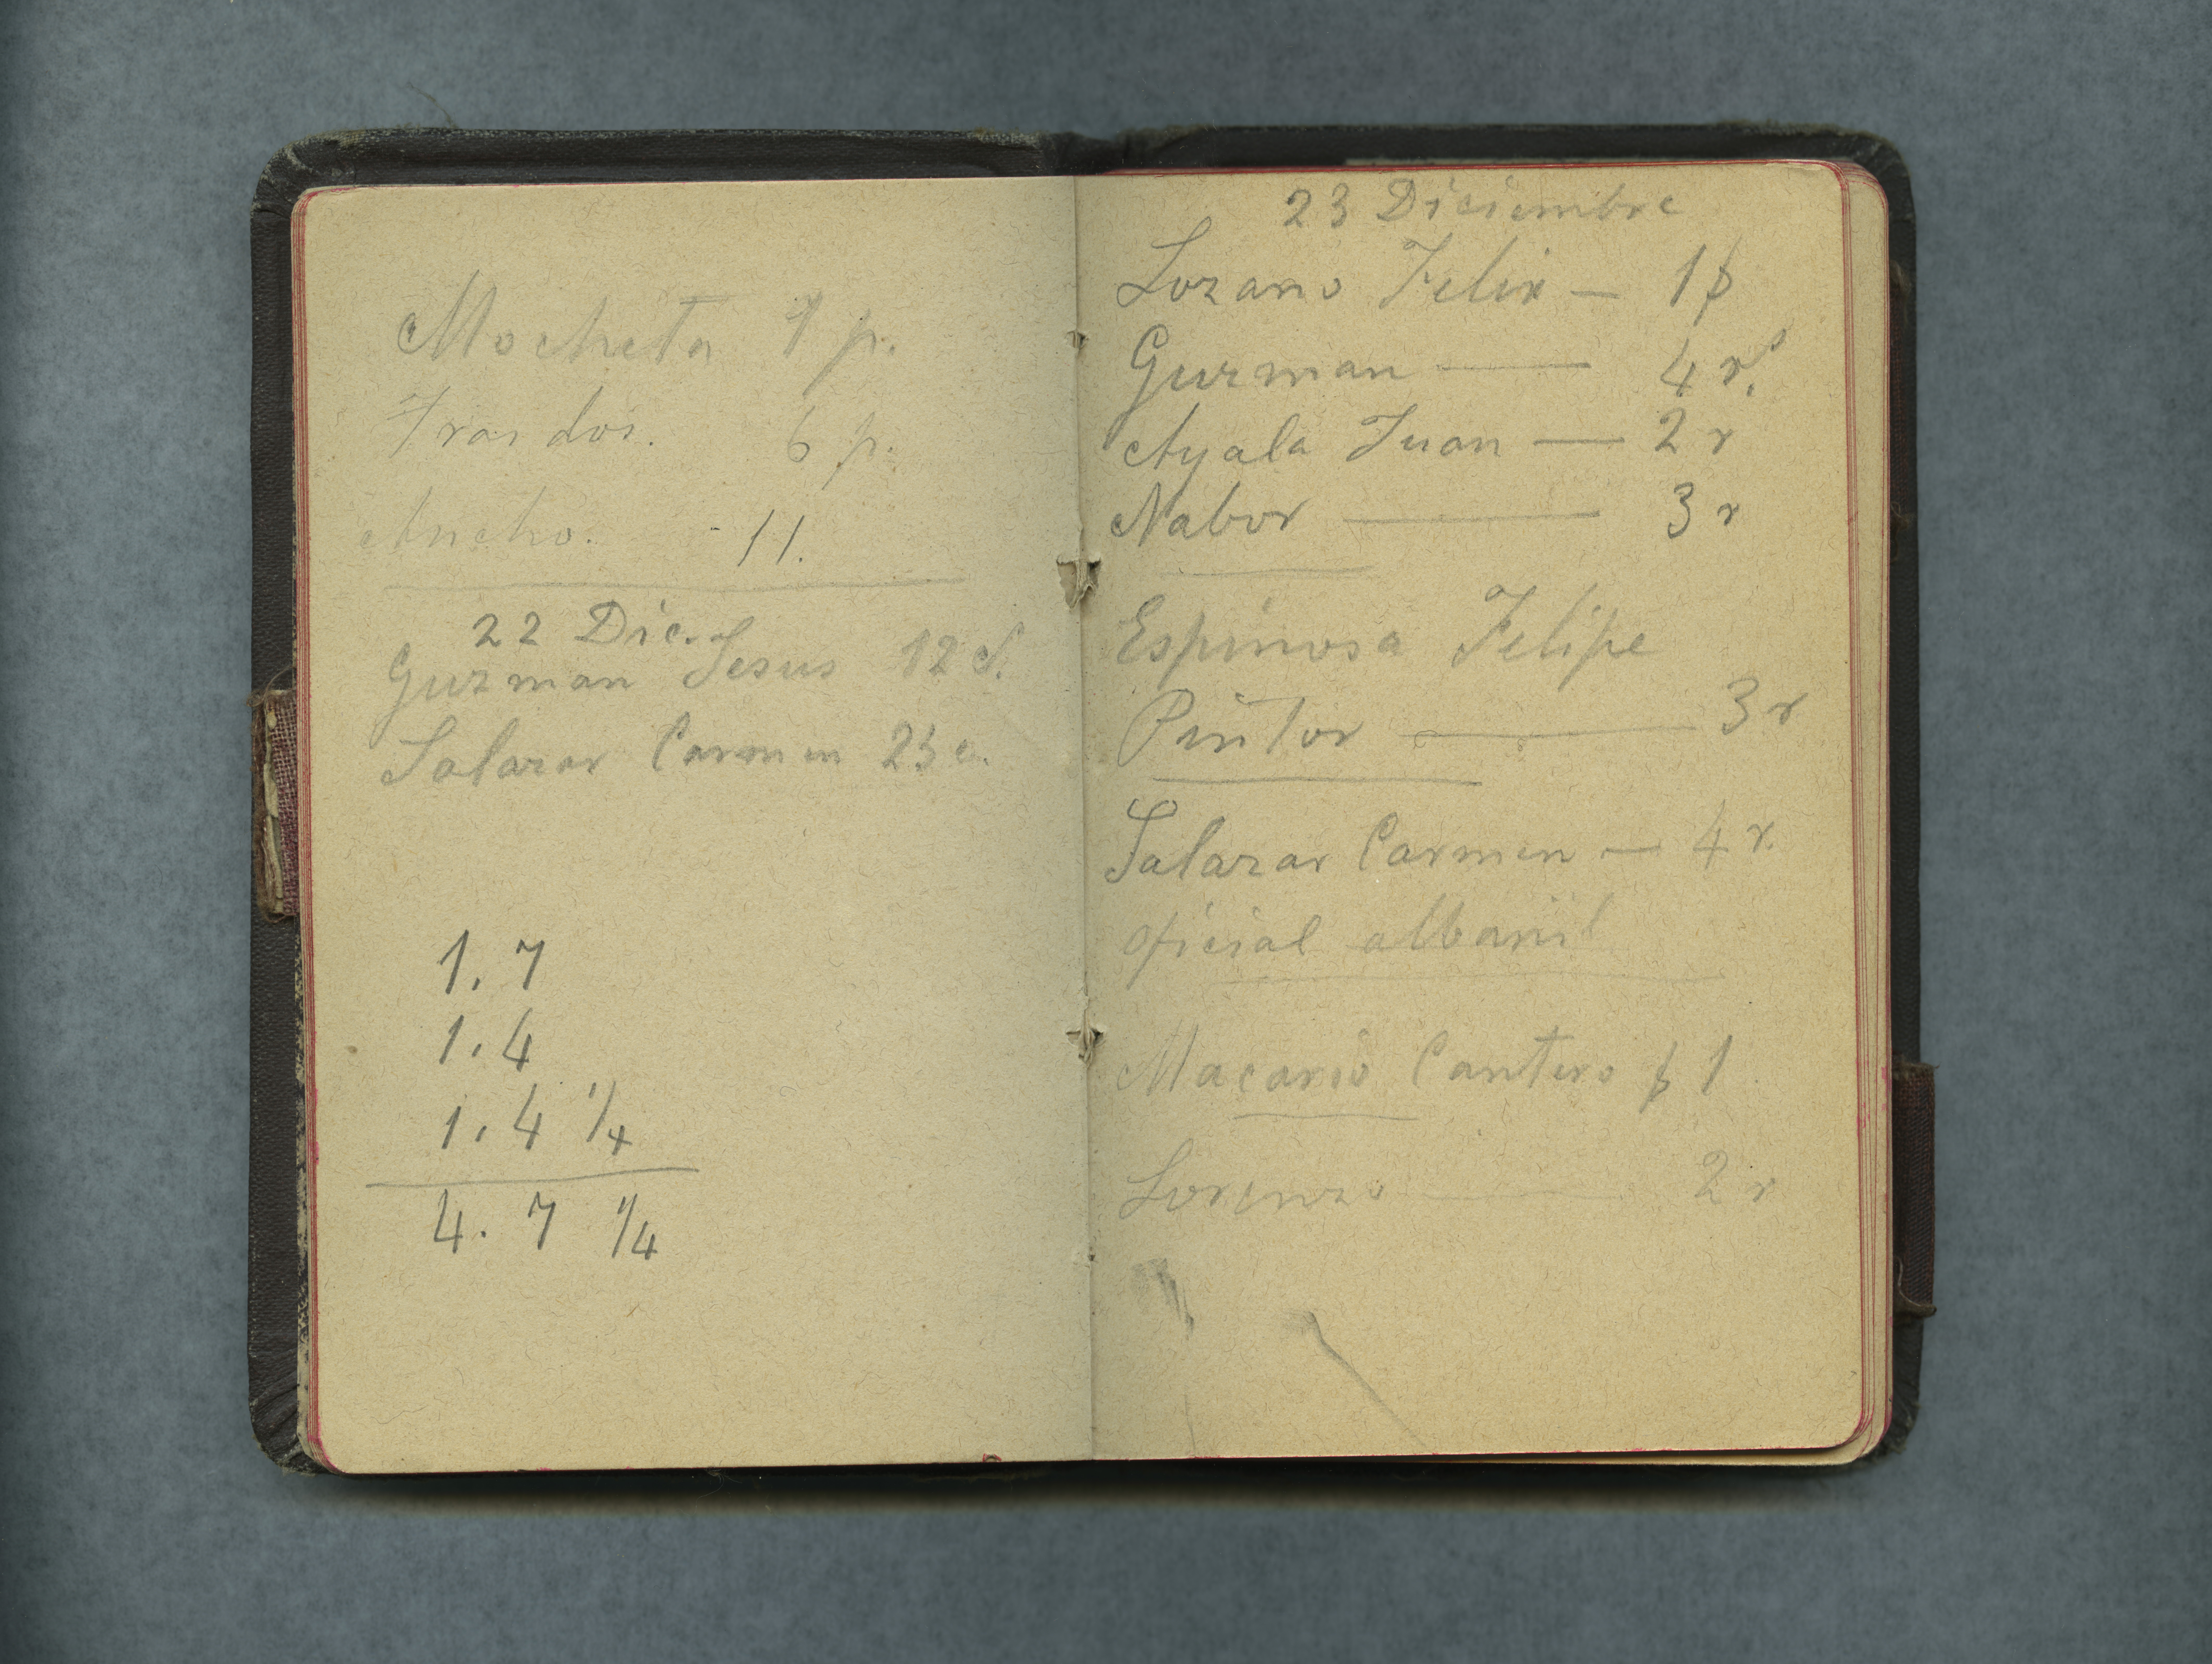 Mocheta 1 p.
Trasdos. 6 p.
Ancho. - 11.
22 Dic.
Guzman Jesus 12 c.
Salazar Carmen 23 c.
1. 7
1. 4
1. 4 1/4
4. 7 1/4
23 Diciembre
Lozano Felix — 1 $
Guzman — 4 rs.
Ayala Juan — 2 r
Nabor — 3 r
Espinosa Felipe
Pintor — 3 r
Salazar Carmen — 4 r.
oficial albañil
Macario Cantero $ 1
Lorenzo — 2 r